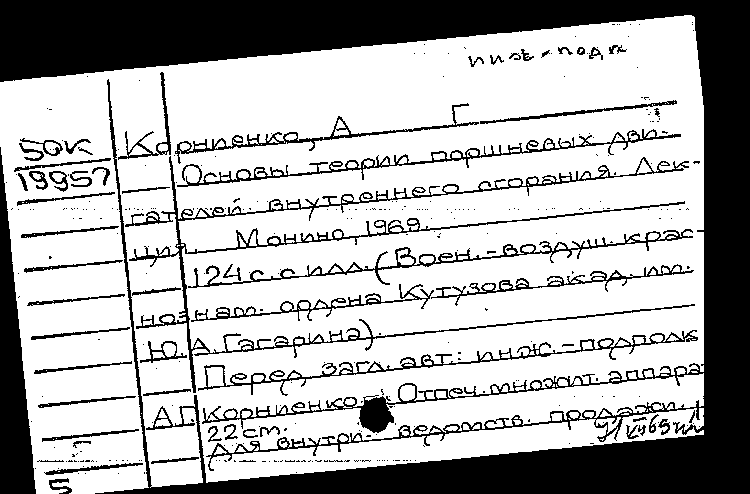 инж-подп
50К Корниенко, А Г
19957 Основы теории поршневых дви-
гателей внутреннего сгорания. Лек-
ция. Монино, 1969.
124 с. с илл. (Воен.-воздуш. крас-
нознам. ордена Кутузова акад. им.
Ю.А. Гагарина).
Перед загл. авт.: инж.-подполк
А.Г. Корниенко. Отпеч. множит. аппара
22 см.
Для внутри ведомств. продажи.
Г
5